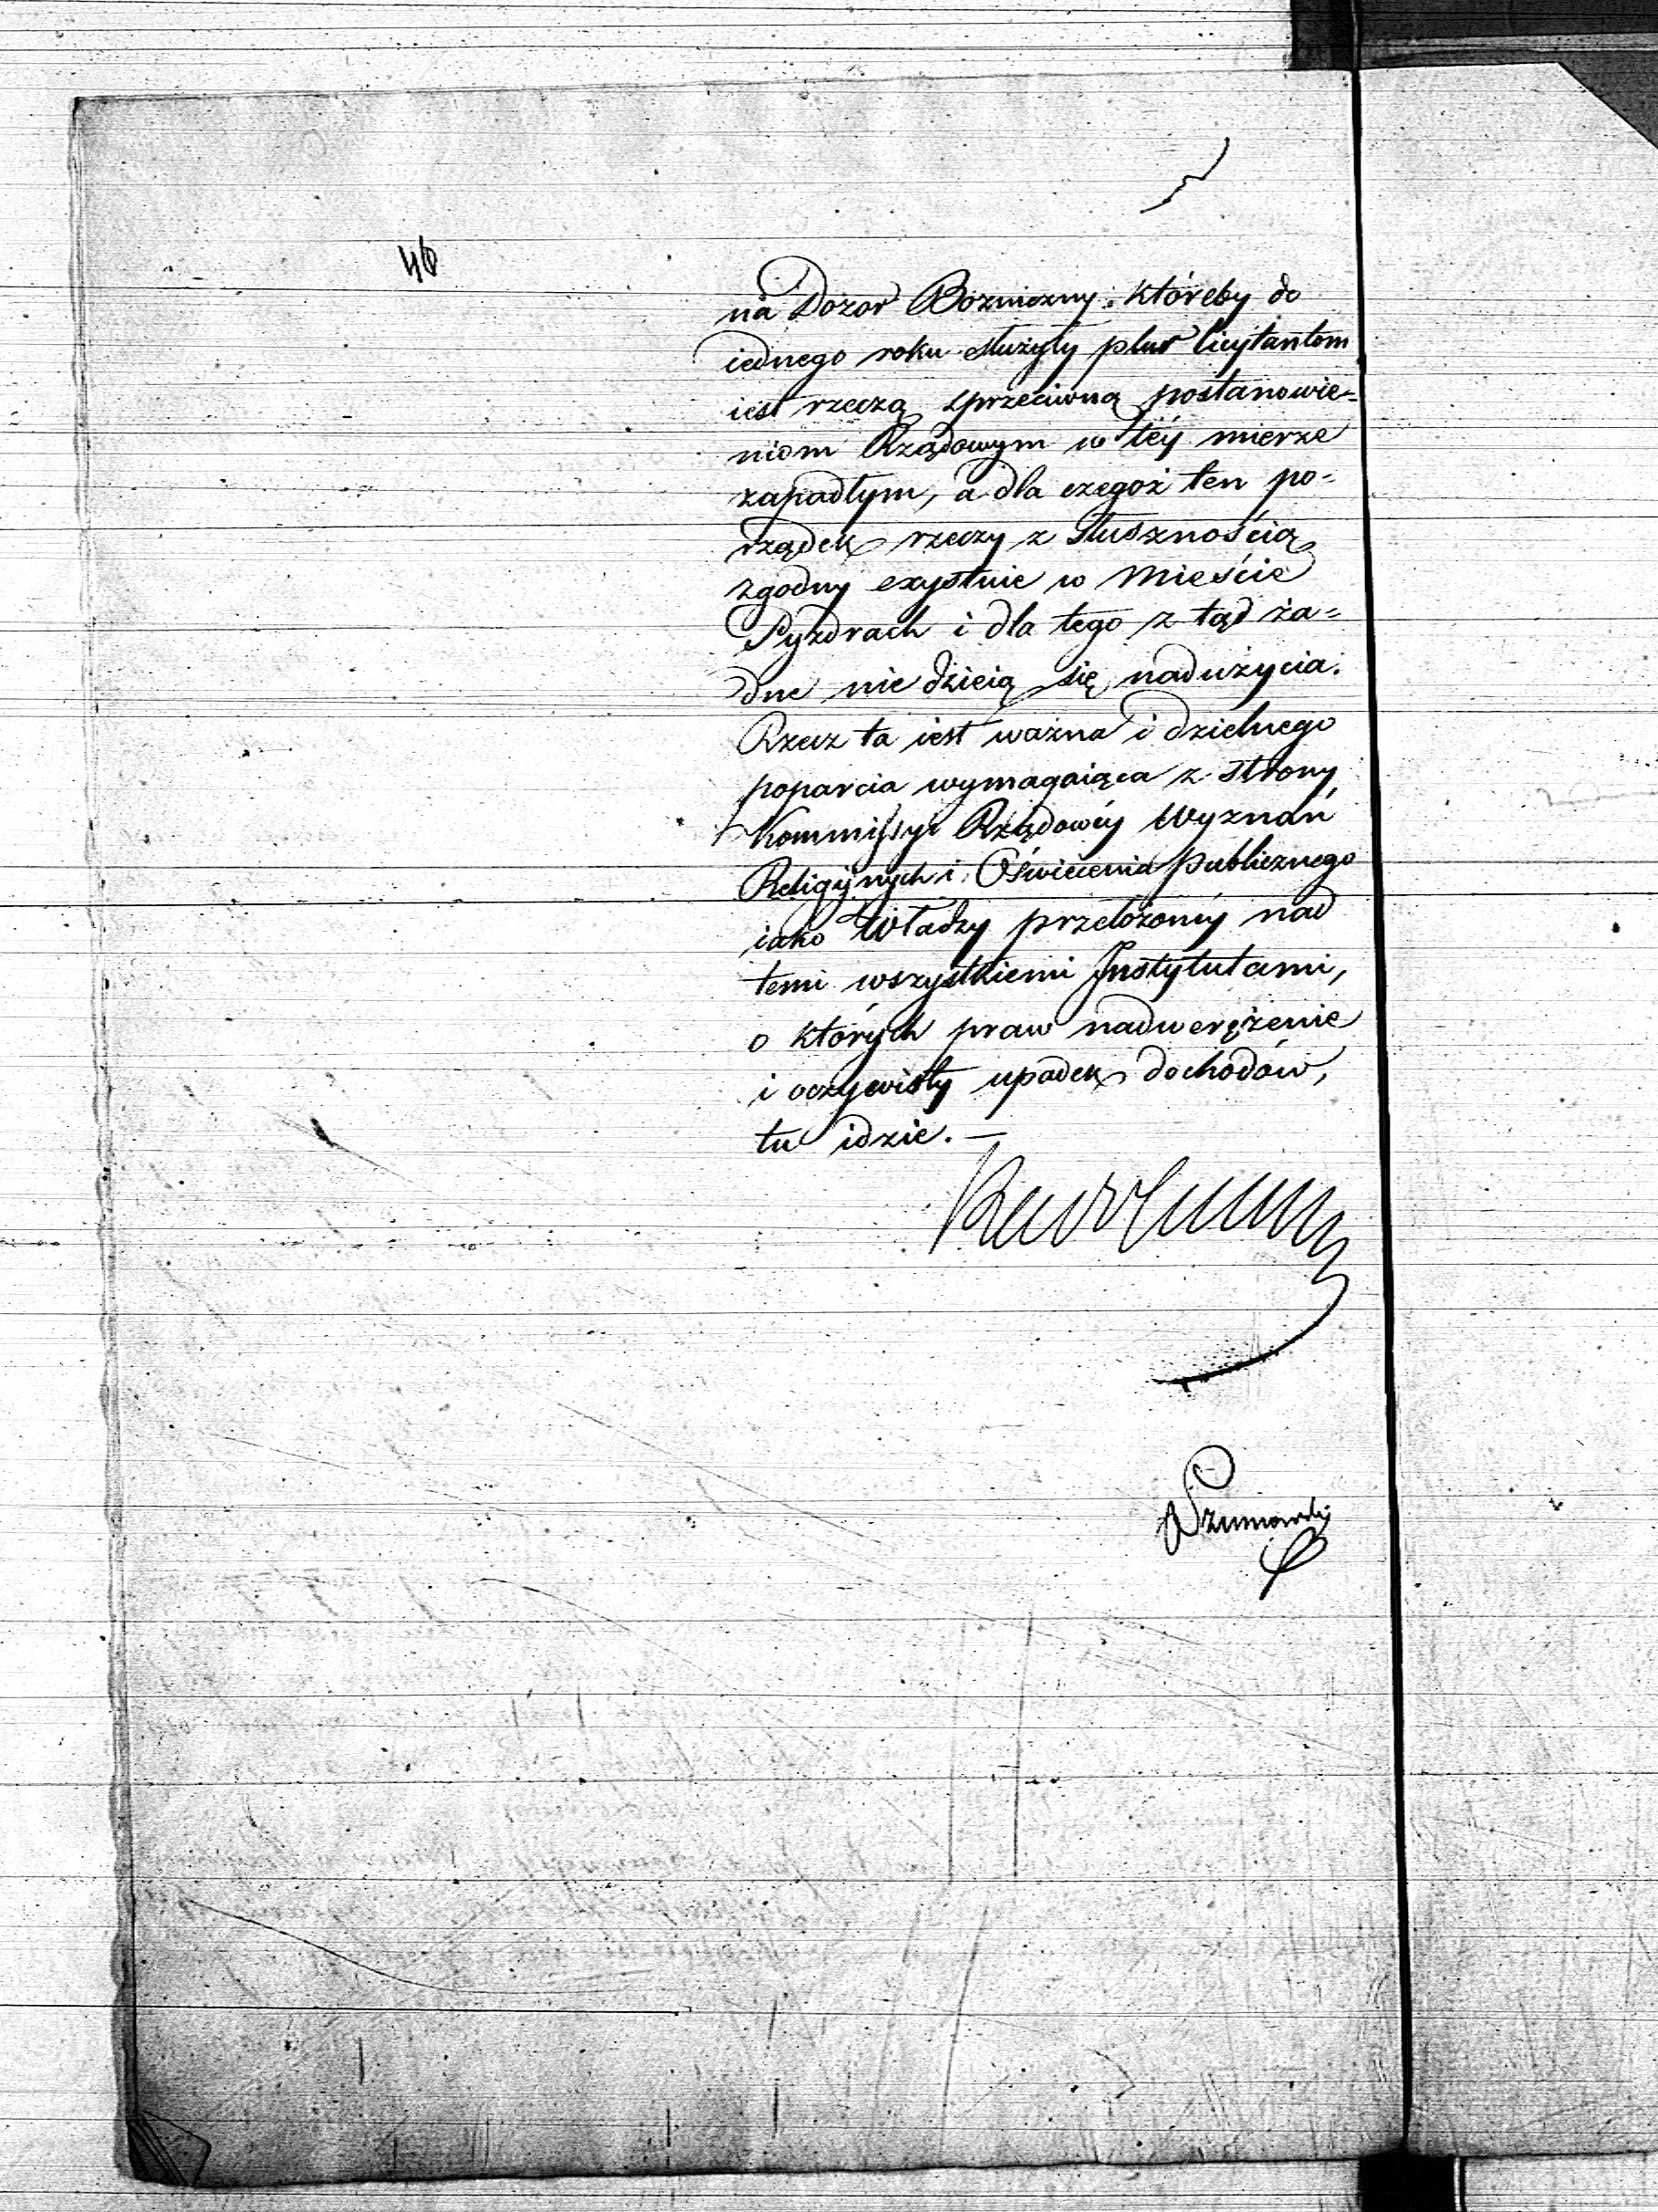 46
na Dozor Bożniczny, któreby do
iednego roku służyły plus licytantom
iest rzeczą sprzeciwną postanowie=
niom Rządowym w téy mierze
zapadłym, a dla czegoż ten po=
rządek rzeczy z słusznością
zgodny exystuie w Mieście
Pyzdrach i dla tego z tąd ża=
dne nie dzieią się nadużycia.
Rzecz ta iest ważna i dzielnego
poparcia wymagaiąca z strony
Kommissyi Rządowéy Wyznań
Religiynych i Oświecenia Publicznego
iako Władzy przełożonéy nad
temi wszystkiemi Instytutami,
o których praw nadwerężenie
i oczywisty upadek dochodów,
tu idzie. —
Szumowski